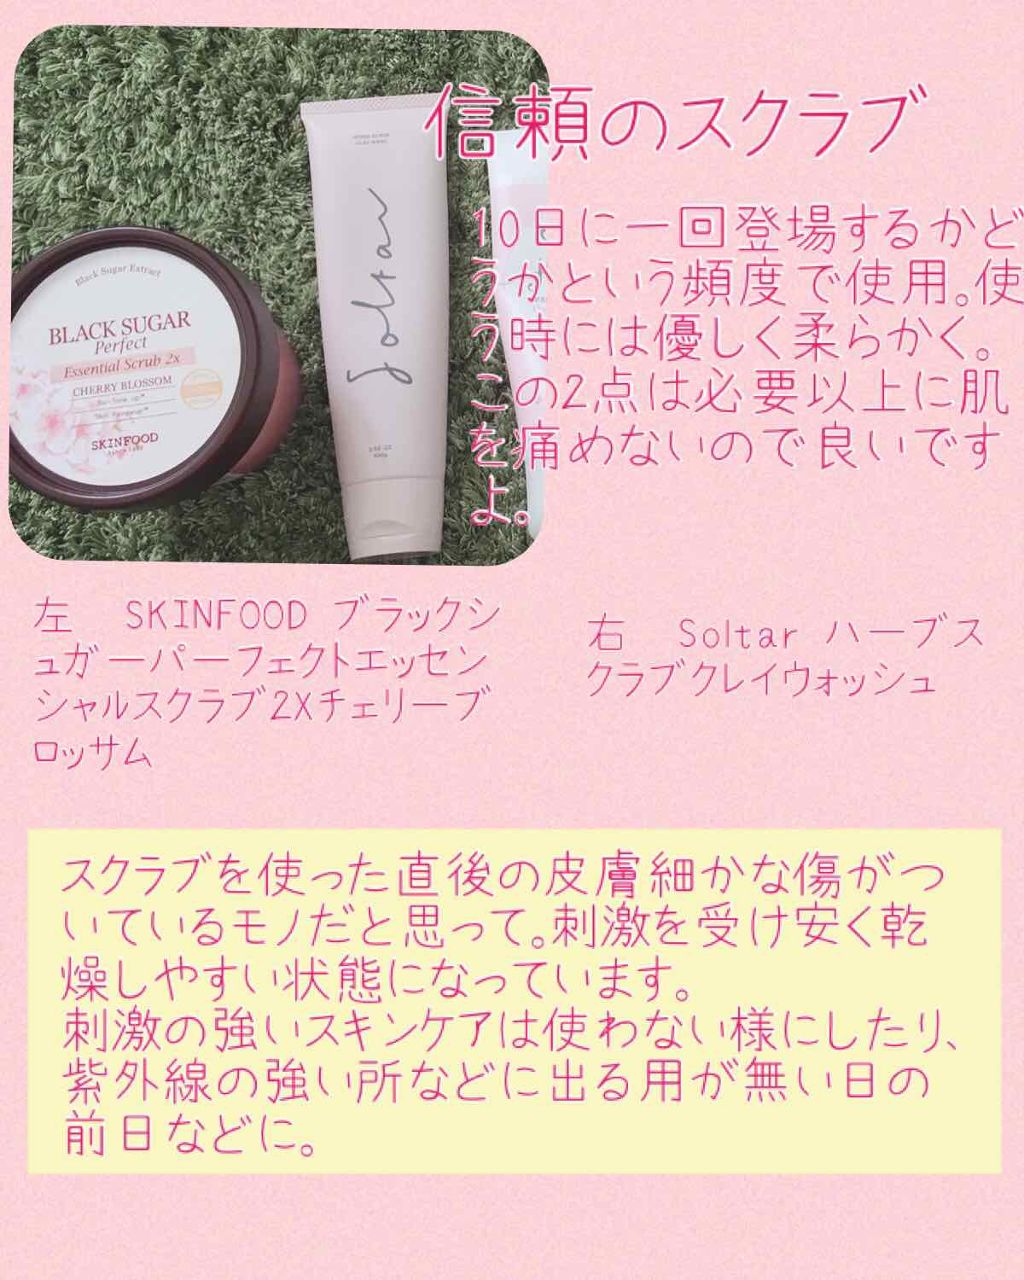 信頼のスクラブ
10日に一回登場するかど
うかという頻度で使用。使
う時には優しく柔らかく。
この2点は必要以上に肌
を痛めないので良いです
よ。
Black Sugar Extract
BLACK SUGAR
Perfect
Essential Scrub 2x
CHERRY BLOSSOM
SKINFOOD
Soltar
左 SKINFOOD ブラックシ
ュガーパーフェクトエッセン
シャルスクラブ2Xチェリーブ
ロッサム
右 Soltar ハーブス
クラブクレイウォッシュ
スクラブを使った直後の皮膚細かな傷がつ
いているモノだと思って。刺激を受け安く乾
燥しやすい状態になっています。
刺激の強いスキンケアは使わない様にしたり、
紫外線の強い所などに出る用が無い日の
前日などに。